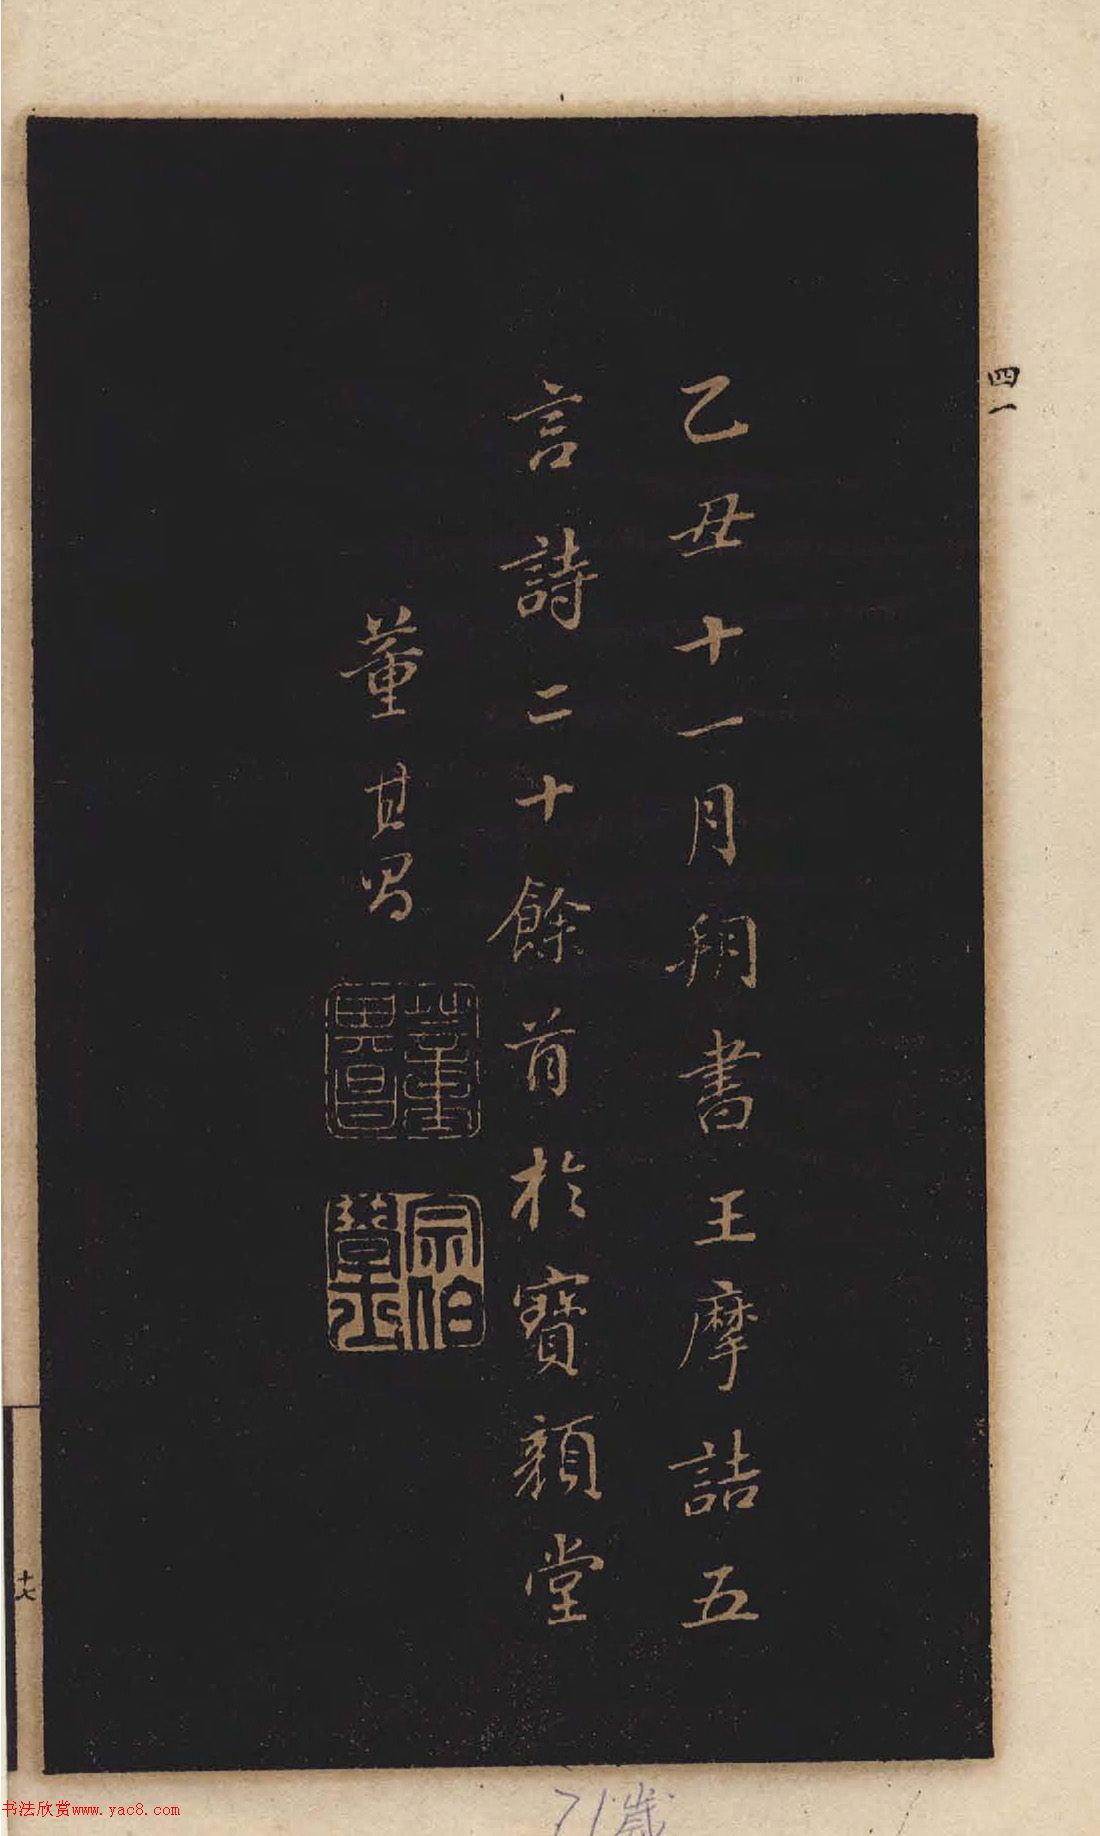 四一
乙丑十一月朔書王摩詰五
言詩二十餘首於寶顏堂
董其昌
董其昌
宗伯學士
十六
71歲
书法欣赏www.yac8.com